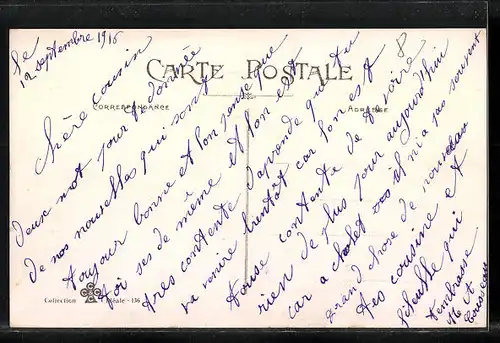 le
12 septembre 1916
CARTE POSTALE
CORRESPONDANCE
ADRESSE
8
Chère Cousin
Deux mot pour te donnée
de nos nouvelles qui sont
toujour bonne et l'on pense que
toi ses de même et l'on est
tres contente d'aprende que tu
va venire bientôt car l'on est
touse contente de te voire
rien de plus pour aujourd'hui
car a chalet il n'a pas souvent
grand chose de nouveau
tes cousine et
qui
t'embrasse
Collection Idéale - 136